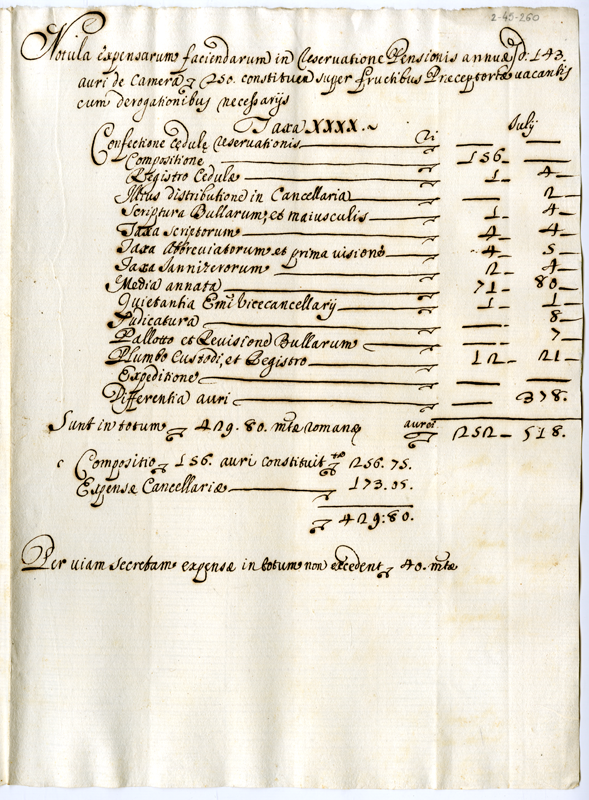 2-45-260
Notula expensarum faciendarum in Reservatione Pensionis annuæ d: 143.
auri de Camera 250. constituen super fructibus Præceptoriæ vacantis
cum derogationibus necessarijs
Taxa XXXX.
Julij
Confectione cedulę Reservationis
Compositione 156
Registro Cedulæ 1 4
Minus distributione in Cancellaria 2
Scriptura Bullarum, et maiusculis 1 4
Taxa scriptorum 4 4
Taxa Abbreviatorum et prima visione 4 5
Taxa Jannizerorum 2 4
Media annata 71 80
Quietantia Emi Vicecancellarij 1 1
Judicatura 8
Pallotto et Revisione Bullarum 7
Plumbo Custodi, et Registro 12 21
Expeditione
Differentia auri 378.
Sunt in totum 429.80. mtæ romanę auri 252 518.
Compositio 156. auri constituit 256.75.
Expensæ Cancellariæ 173.05.
429:80.
Per viam secretam expensæ in totum non excedent 40. mtæ